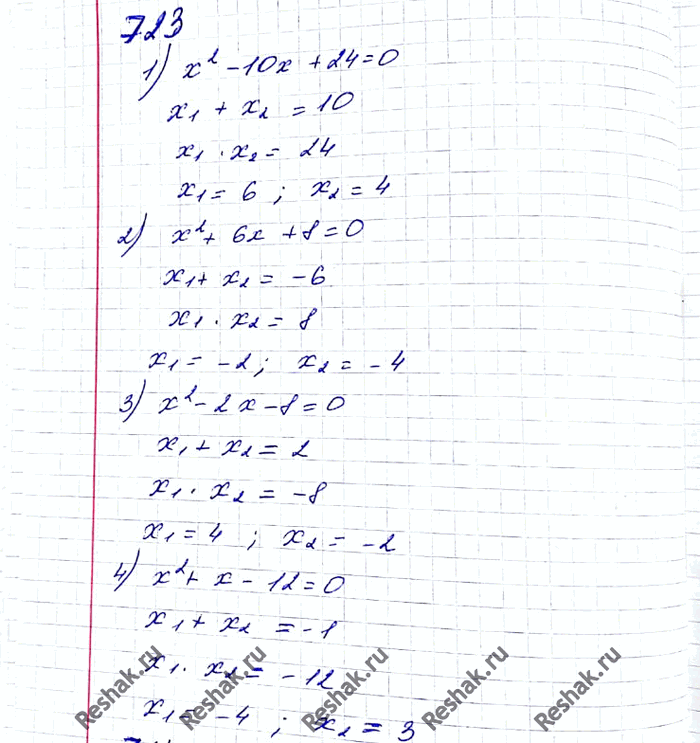 723
1) x² - 10x + 24 = 0
x₁ + x₂ = 10
x₁ · x₂ = 24
x₁ = 6 ; x₂ = 4
2) x² + 6x + 8 = 0
x₁ + x₂ = -6
x₁ · x₂ = 8
x₁ = -2 ; x₂ = -4
3) x² - 2x - 8 = 0
x₁ + x₂ = 2
x₁ · x₂ = -8
x₁ = 4 ; x₂ = -2
4) x² + x - 12 = 0
x₁ + x₂ = -1
x₁ · x₂ = -12
x₁ = -4 ; x₂ = 3
Reshak.ru Reshak.ru Reshak.ru Reshak.ru Reshak.ru